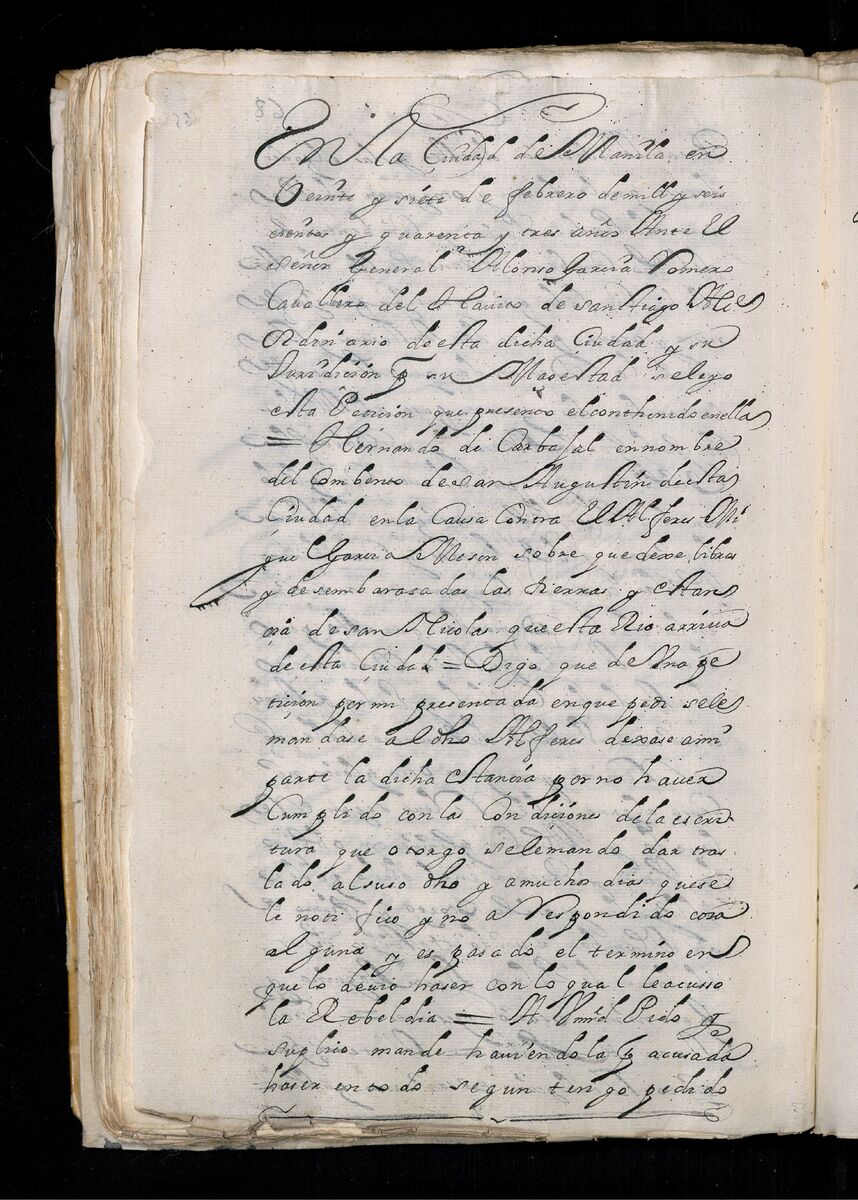 En la Ciudad de Manila en
Veinte y siete de febrero de mill y seis
cientos y quarenta y tres años Ante El
señor General Alonso Garcia Romero
Cavallero del Havito de santtiago Alcde
Ordinario de esta dicha Ciudad y su
Jurisdiçion p su Magestad se leyo
esta Petiçion que presento el conthenido en ella
= Hernando de Carbajal en nombre
del Combento de san Augustin de esta
Ciudad en la Causa Contra El Alferes Mi
guel Garcia Moson sobre que dexe libres
y desembarasadas las tierras y estan
cia de san Nicolas que esta Rio arriva
de esta Ciudad = Digo que de Vna pe
tiçion por mi presentada en que pedi se le
mandase al dho Alferes dexase a mi
parte la dicha estançia por no haver
Cumplido con las Condiçiones de la escri
tura que otorgo se le mando dar tras
lado al suso dho y a muchos dias que se
le notifico y no a Respondido cosa
alguna y es pasado el termino en
que lo devio haser con lo qual le acusso
la Rebeldia = A Vmrd Pido y
suplico mande haviendola p acusada
haser en todo segun tengo pedido